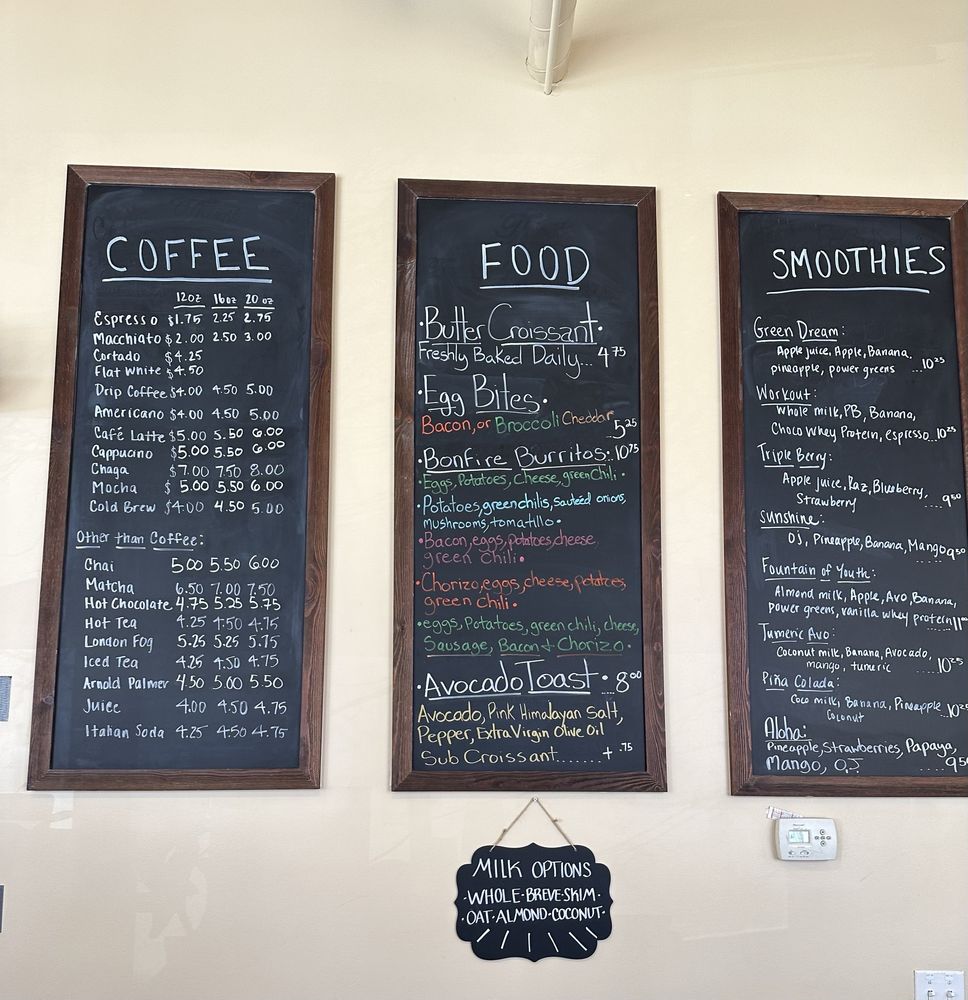 COFFEE
12oz 16oz 20 oz
Espresso $1.75 2.25 2.75
Macchiato $2.00 2.50 3.00
Cortado $4.25
Flat White $4.50
Drip Coffee $4.00 4.50 5.00
Americano $4.00 4.50 5.00
Café Latte $5.00 5.50 6.00
Cappucino $5.00 5.50 6.00
Chaga $7.00 7.50 8.00
Mocha $5.00 5.50 6.00
Cold Brew $4.00 4.50 5.00
Other than Coffee:
Chai 5.00 5.50 6.00
Matcha 6.50 7.00 7.50
Hot Chocolate 4.75 5.25 5.75
Hot Tea 4.25 4.50 4.75
London Fog 5.25 5.25 5.75
Iced Tea 4.25 4.50 4.75
Arnold Palmer 4.50 5.00 5.50
Juice 4.00 4.50 4.75
Italian Soda 4.25 4.50 4.75
FOOD
·Butter Croissant·
Freshly Baked Daily... 4 75
·Egg Bites·
Bacon, or Broccoli Cheddar 5 25
·Bonfire Burritos: 10 75
·Eggs, Potatoes, Cheese, green Chili·
·Potatoes, green chilis, sauteéd onions,
mushrooms, tomatillo·
·Bacon, eggs, potatoes, cheese,
green Chili·
·Chorizo, eggs, cheese, potatoes,
green chili·
·eggs, Potatoes, green chili, cheese,
Sausage, Bacon + Chorizo·
·Avocado Toast· 8 00
Avocado, Pink Himalayan Salt,
Pepper, Extra Virgin Olive Oil
Sub Croissant.......+ .75
SMOOTHIES
Green Dream:
Apple juice, Apple, Banana,
pineapple, power greens ...10 25
Workout:
Whole milk, PB, Banana,
Choco Whey Protein, espresso...10 25
Triple Berry:
Apple juice, Raz, Blueberry,
Strawberry ....9 50
Sunshine:
OJ, Pineapple, Banana, Mango 9 50
Fountain of Youth:
Almond milk, Apple, Avo, Banana,
power greens, vanilla whey protein 11 00
Tumeric Avo:
Coconut milk, Banana, Avocado,
mango, tumeric ....10 25
Piña Colada:
Coco milk, Banana, Pineapple,
Coconut ...10 25
Aloha:
Pineapple, Strawberries, Papaya,
Mango, OJ ....9 50
MILK OPTIONS
·WHOLE·BREVE·SKIM·
·OAT·ALMOND·COCONUT·